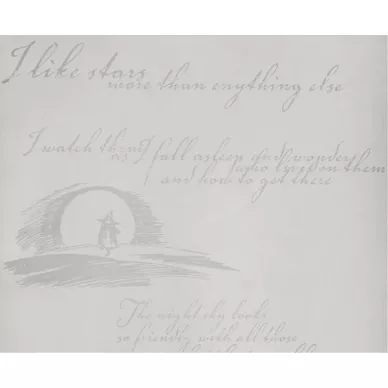 I like stars
more than anything else
I watch them
as I fall asleep and wonder
who lives on them
and how to get there
The night sky looks
so friendly with all those